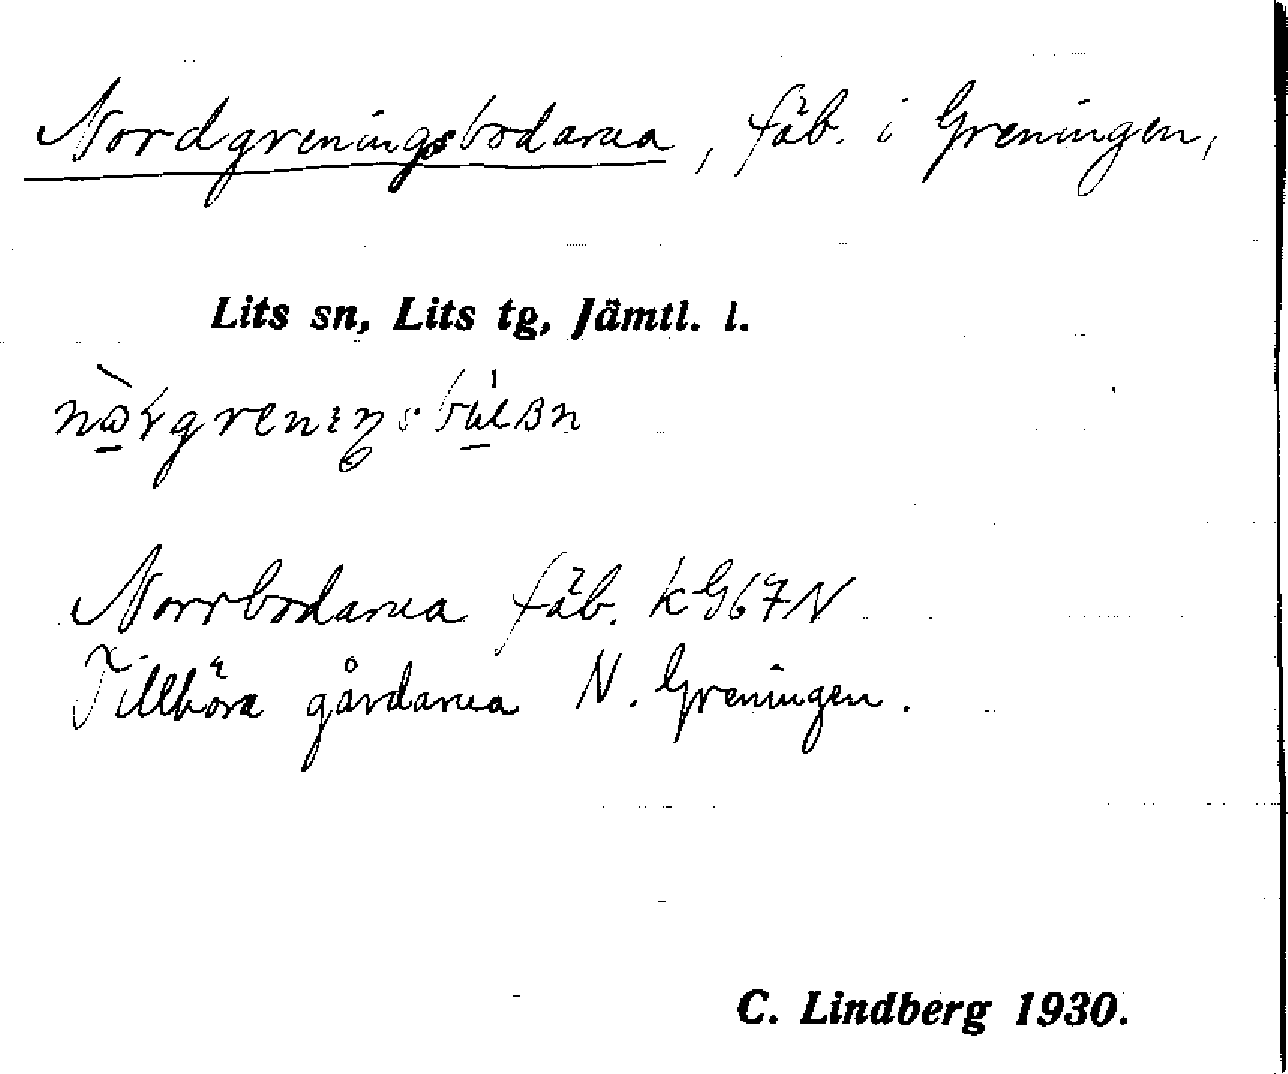 Nordgreningsbodarna, fäb. i Greningen,
Lits sn, Lits tg, Jämtl. l.
Norrbodarna fäb. kG67N
Tillhöra gårdarna N. Greningen.
C. Lindberg 1930.